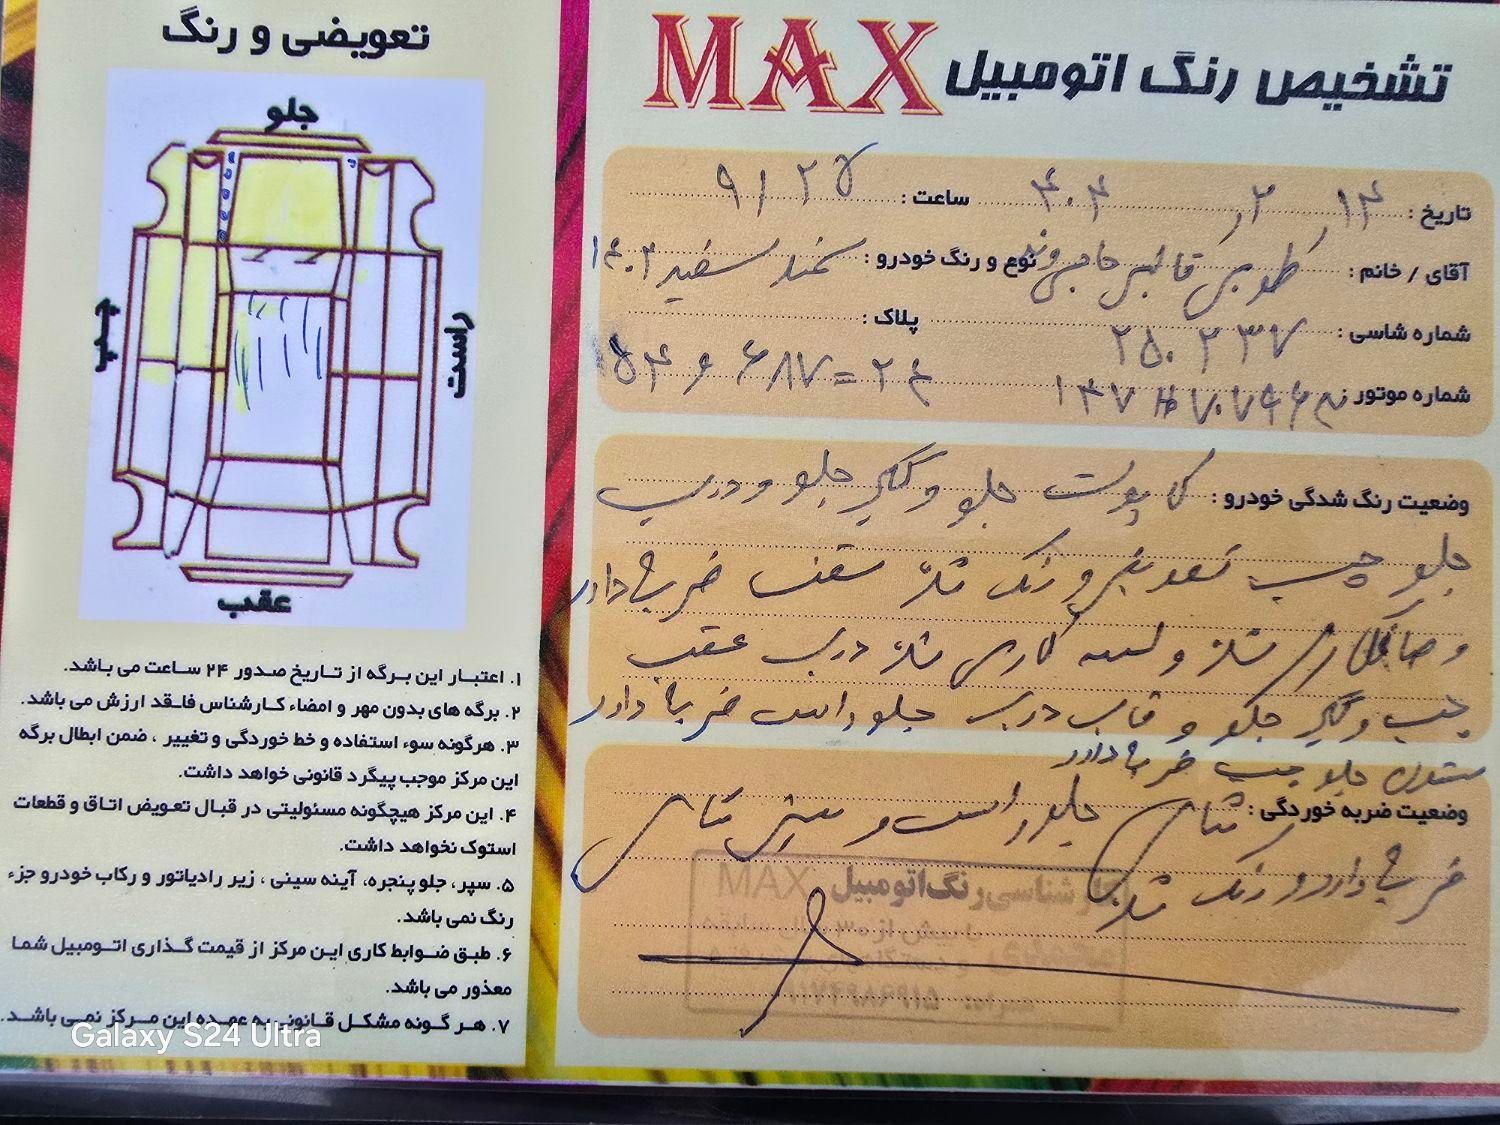 تشخیص رنگ اتومبیل MAX
تاریخ : ۱۴ , ۲ , ۴۰۴ ساعت : ۹/۲۵
آقای / خانم : طوبی نوع و رنگ خودرو : سمند سفید ۱۴۰۲
شماره شاسی : ۲۵۰۲۳۷ پلاک :
شماره موتور
وضعیت رنگ شدگی خودرو : کاپوت جلو و گلگیر جلو و درب
جلو چپ تعویض و رنگ شده سقف ضربه دارد
و صافکاری شده و لیسه کاری شده درب عقب
چپ و گلگیر جلو و قاب درب جلو راست ضربه دارد
ستون جلو چپ ضربه دارد
وضعیت ضربه خوردگی : شاسی جلو راست و سینی شاسی
ضربه دارد و رنگ شده
کارشناسی رنگ اتومبیل MAX
تعویضی و رنگ
جلو
چپ
راست
عقب
۱. اعتبار این برگه از تاریخ صدور ۲۴ ساعت می باشد.
۲. برگه های بدون مهر و امضاء کارشناس فاقد ارزش می باشد.
۳. هرگونه سوء استفاده و خط خوردگی و تغییر ، ضمن ابطال برگه
این مرکز موجب پیگرد قانونی خواهد داشت.
۴. این مرکز هیچگونه مسئولیتی در قبال تعویض اتاق و قطعات
استوک نخواهد داشت.
۵. سپر، جلو پنجره، آینه سینی ، زیر رادیاتور و رکاب خودرو جزء
رنگ نمی باشد.
۶. طبق ضوابط کاری این مرکز از قیمت گذاری اتومبیل شما
معذور می باشد.
۷. هر گونه مشکل قانونی به عهده این مرکز نمی باشد.
Galaxy S24 Ultra